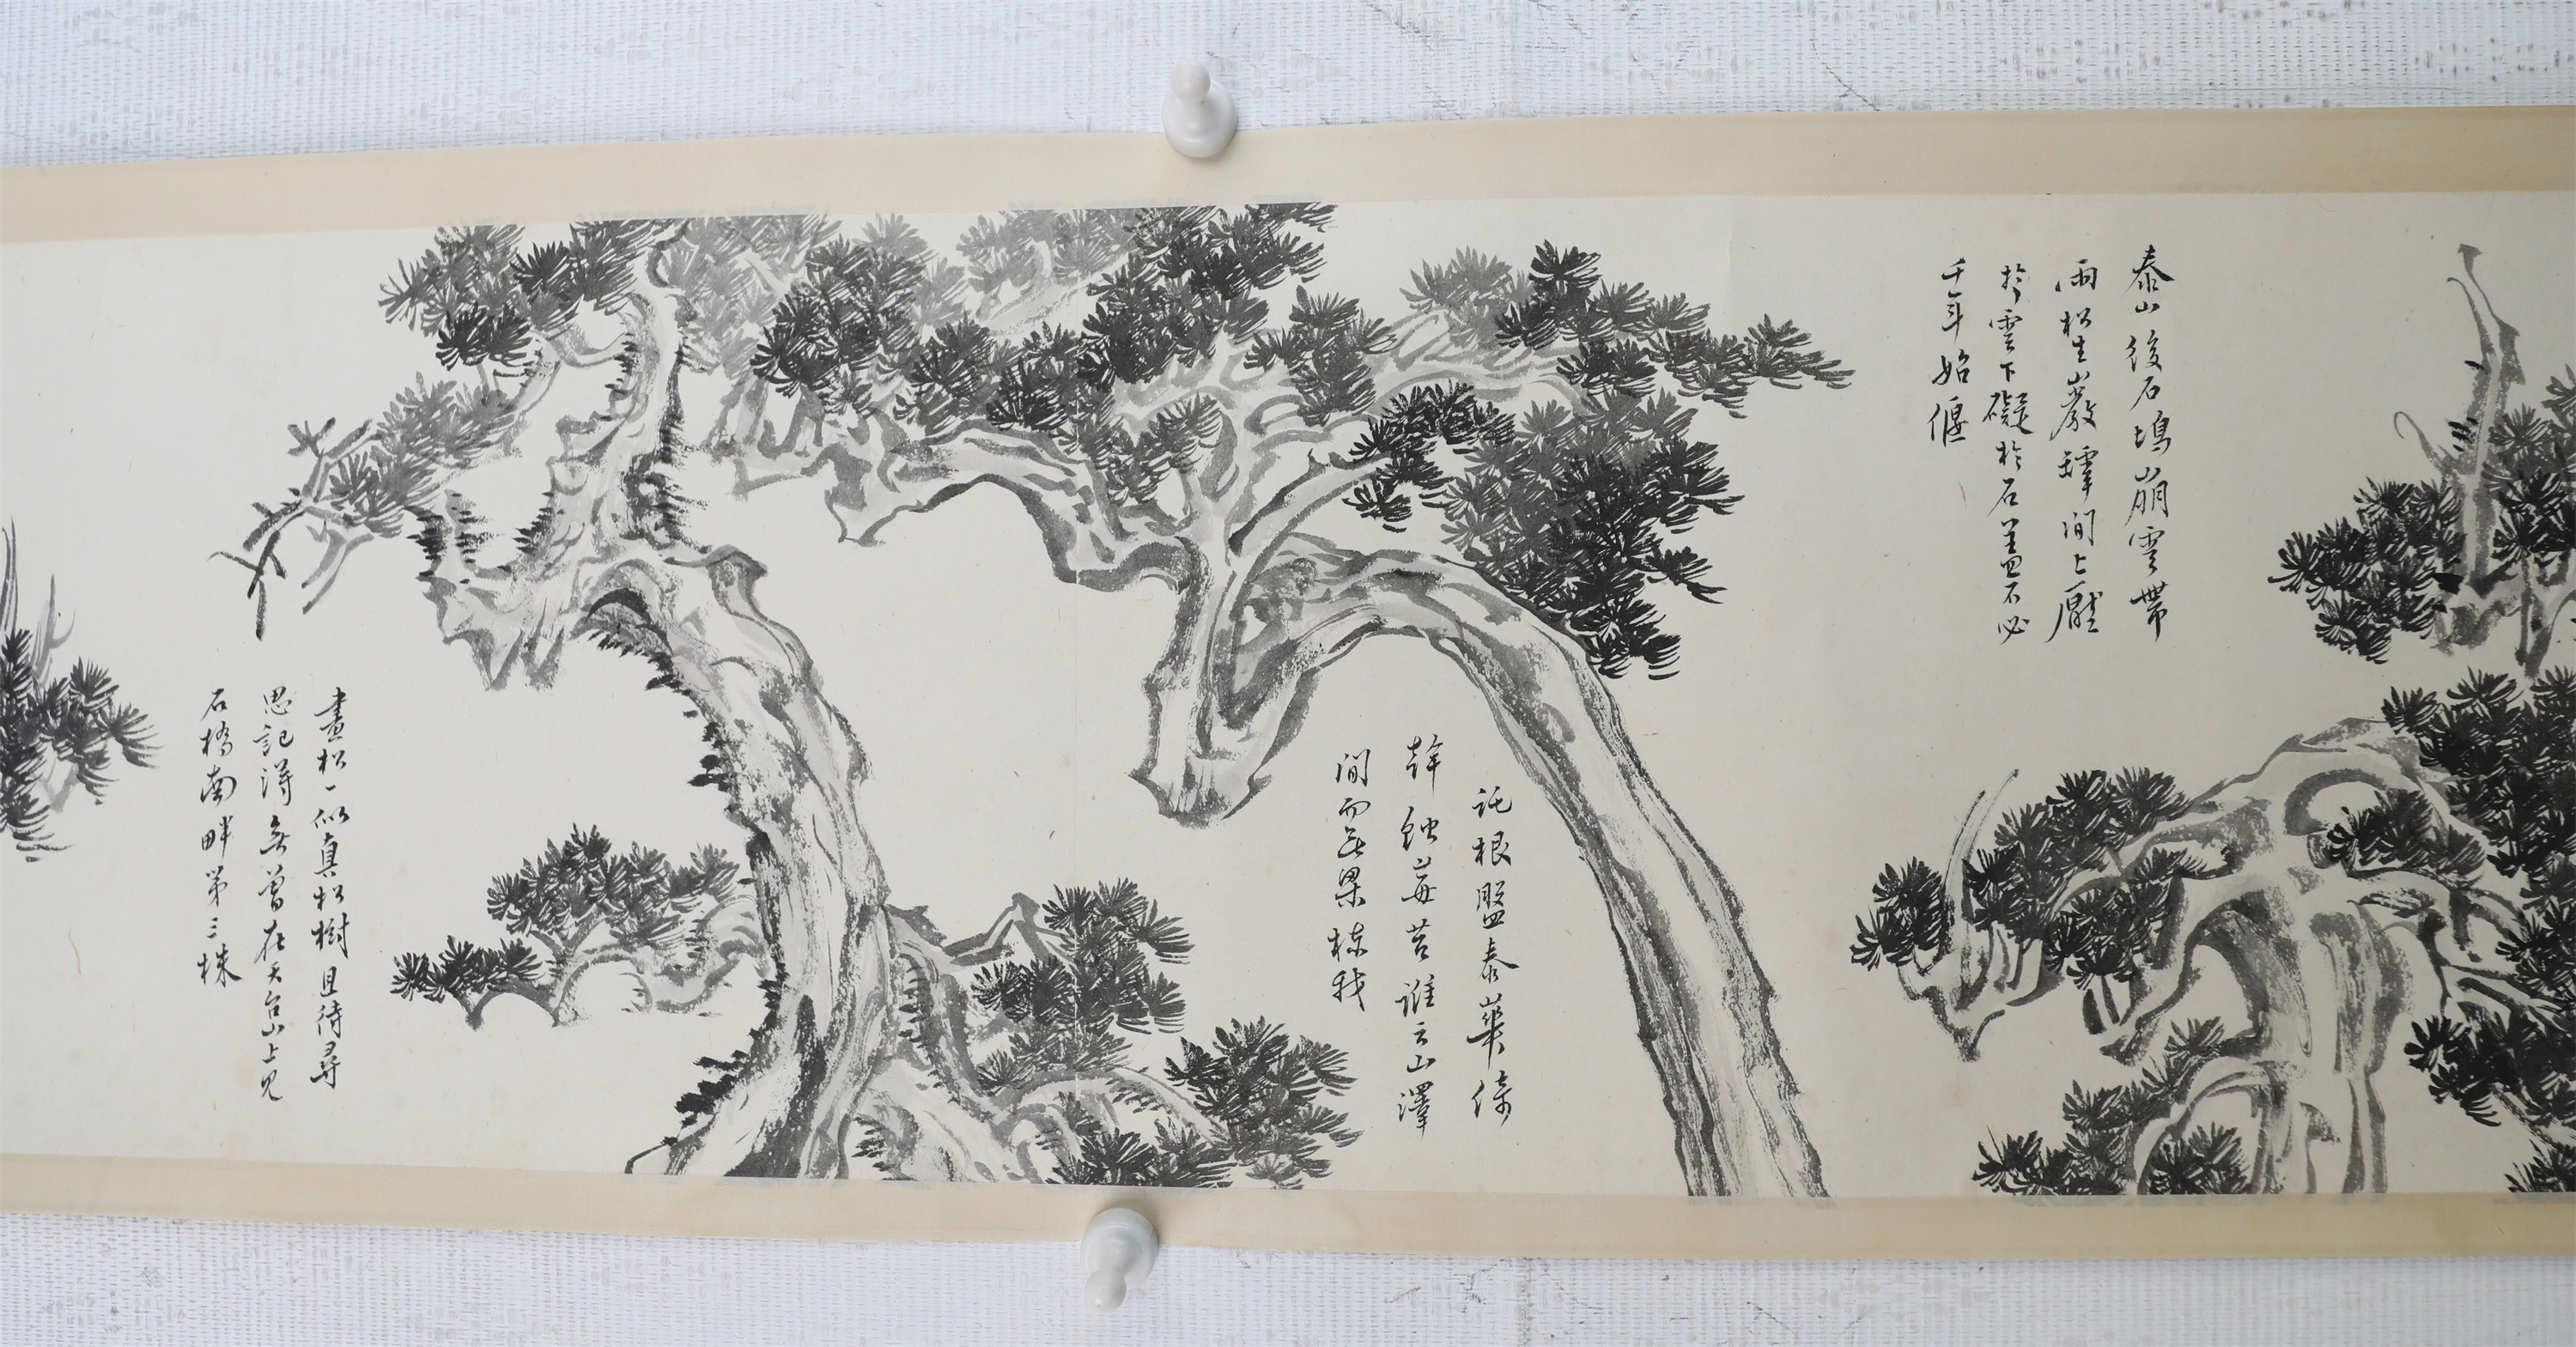 泰山後石塢崩雲帶
雨松生巖罅間上壓
於雲下礙於石蓋不必
千年始偃
託根盤泰華倚
幹蝕莓苔誰云山澤
間而無梁棟我
畫松一似真松樹且待尋
思記得無曾在天台山上見
石橋南畔第三株